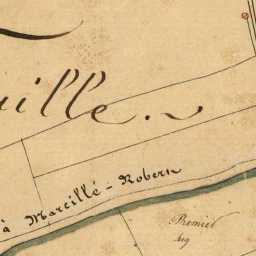 uille.
à Marcillé-Robert
Premier